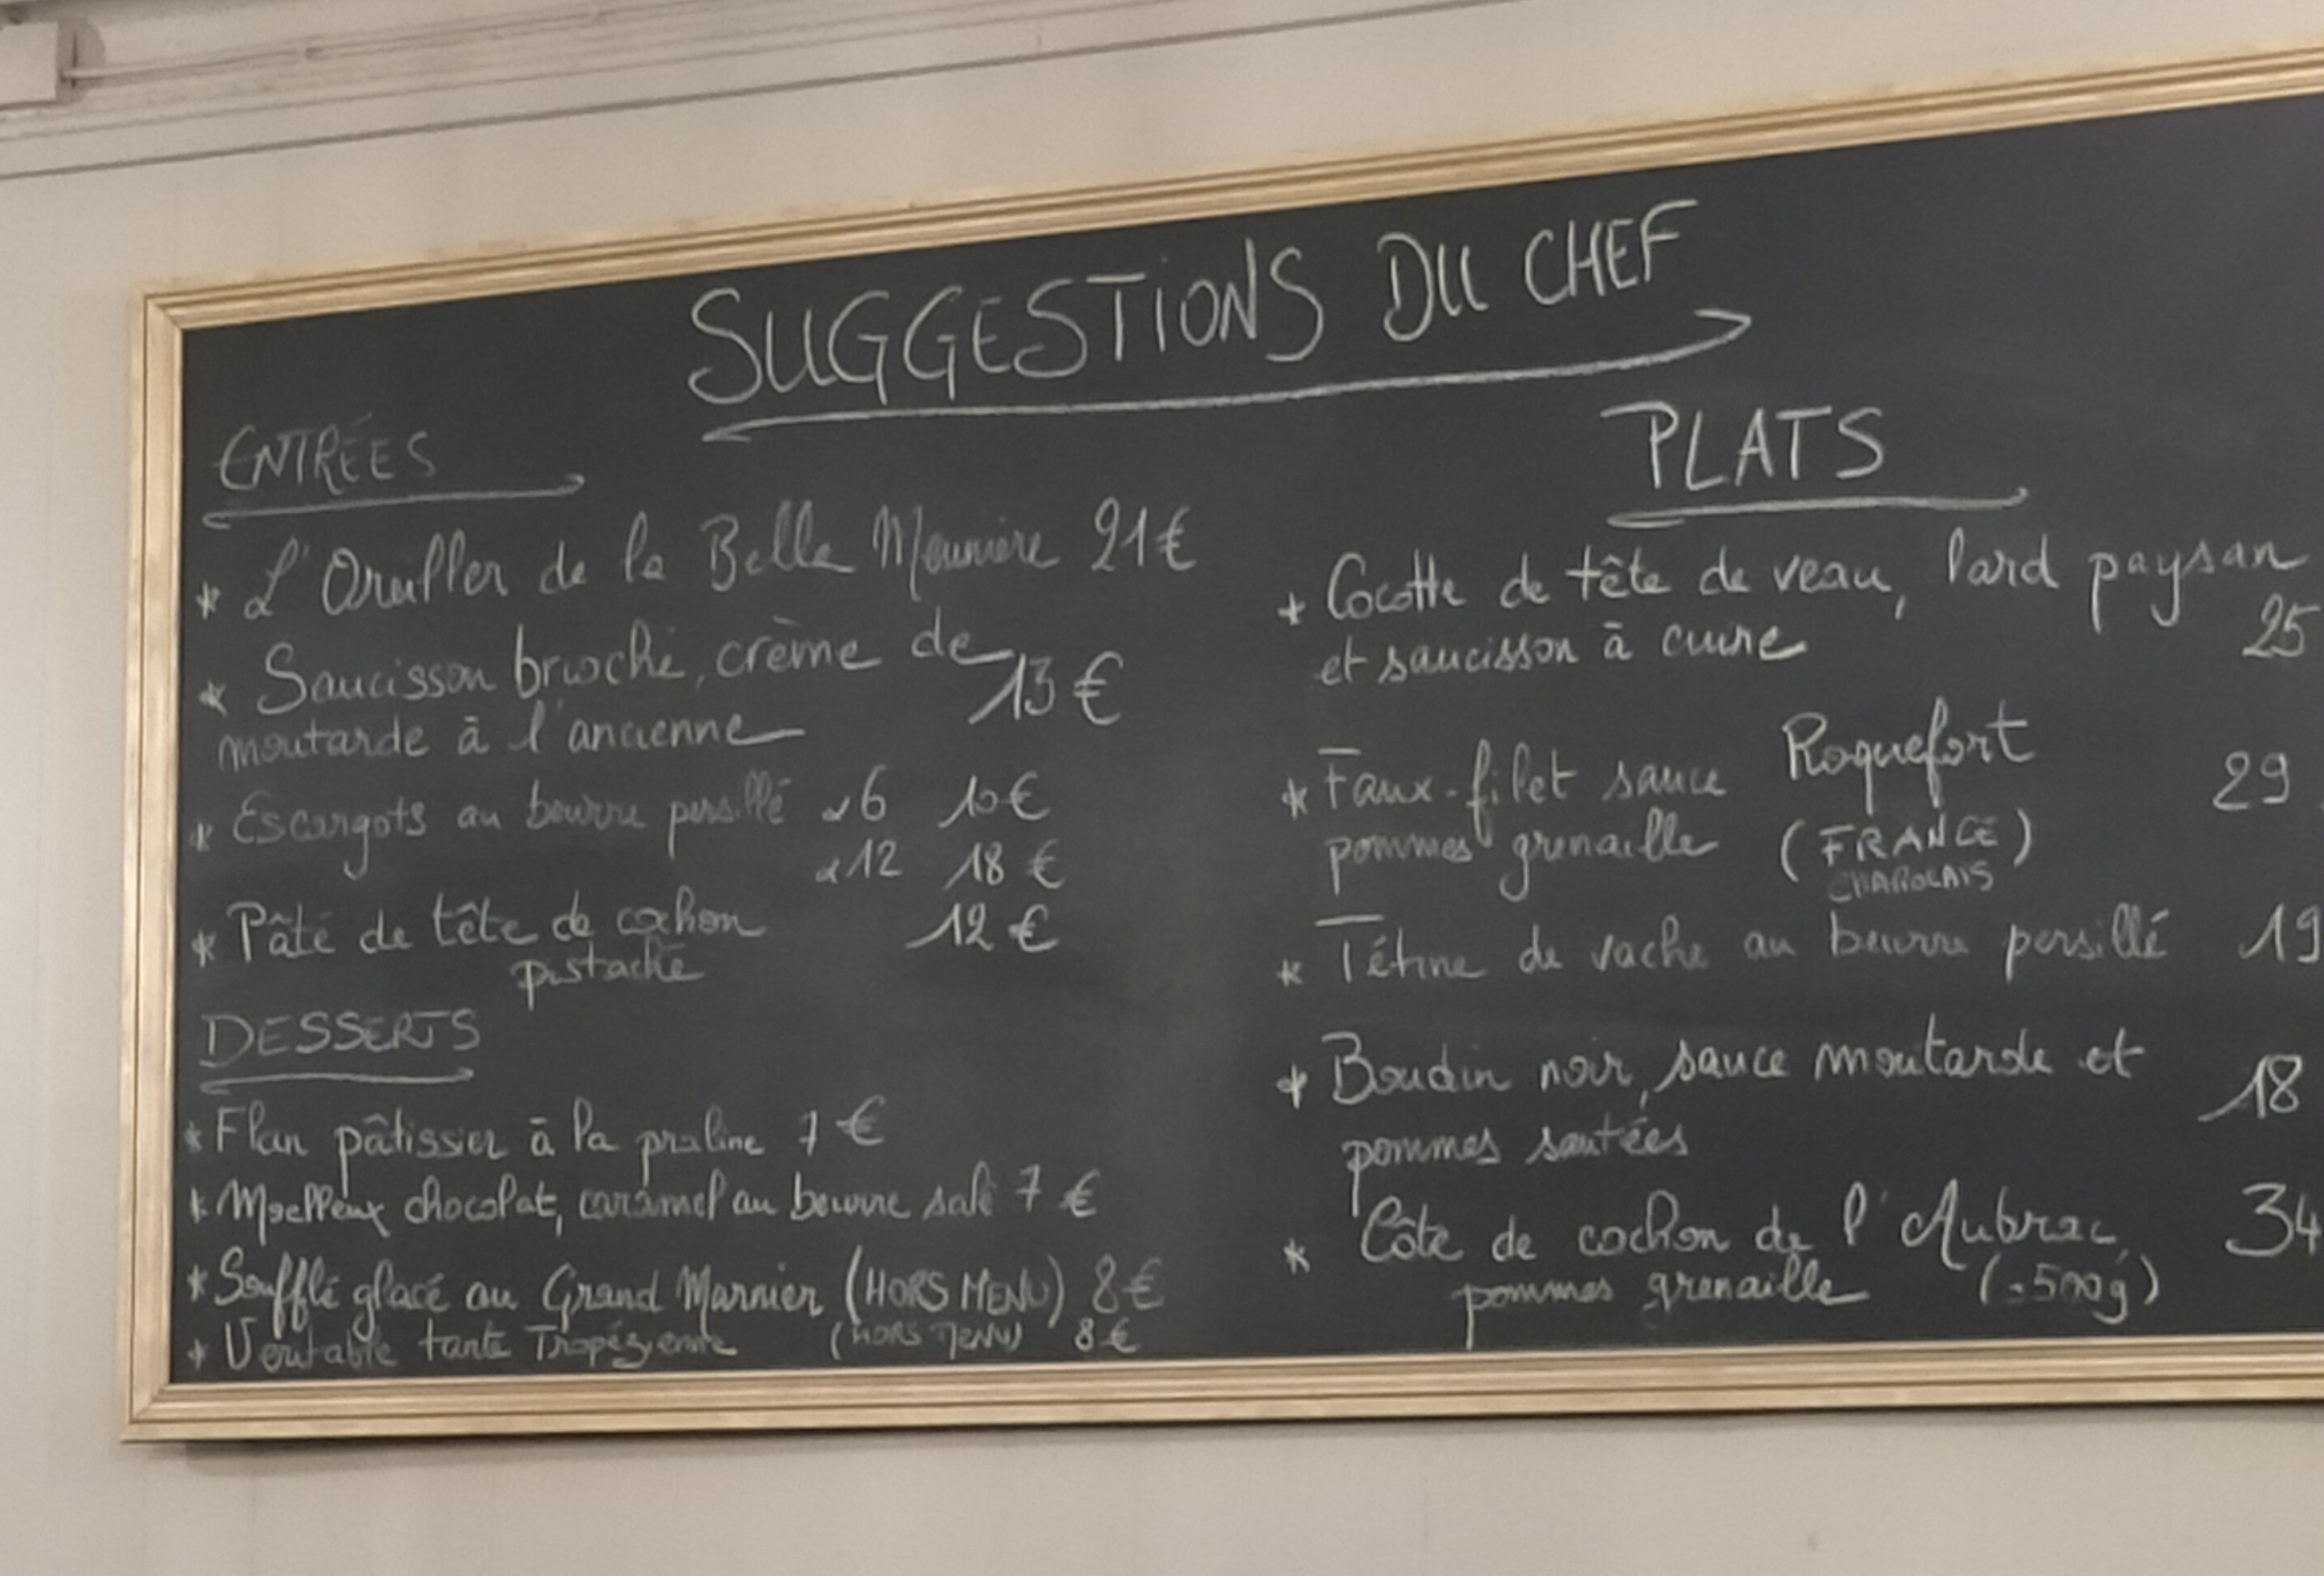 SUGGESTIONS DU CHEF
ENTRÉES
* L'Oreiller de la Belle Meunière 21€
* Saucisson brioché, crème de
moutarde à l'ancienne 13€
* Escargots au beurre persillé x6 10€
x12 18€
* Pâté de tête de cochon 12€
pistaché
DESSERTS
* Flan pâtissier à la praline 7€
* Moelleux chocolat, caramel au beurre salé 7€
* Soufflé glacé au Grand Marnier (HORS MENU) 8€
* Veritable tarte Tropézienne (HORS MENU) 8€
PLATS
* Cocotte de tête de veau, lard paysan
et saucisson à cuire 25
* Faux-filet sauce Roquefort 29
pommes grenaille (FRANCE)
CHAROLAIS
* Tétine de vache au beurre persillé 19
* Boudin noir, sauce moutarde et
pommes sautées 18
* Côte de cochon de l'Aubrac, 34
pommes grenaille (~500g)